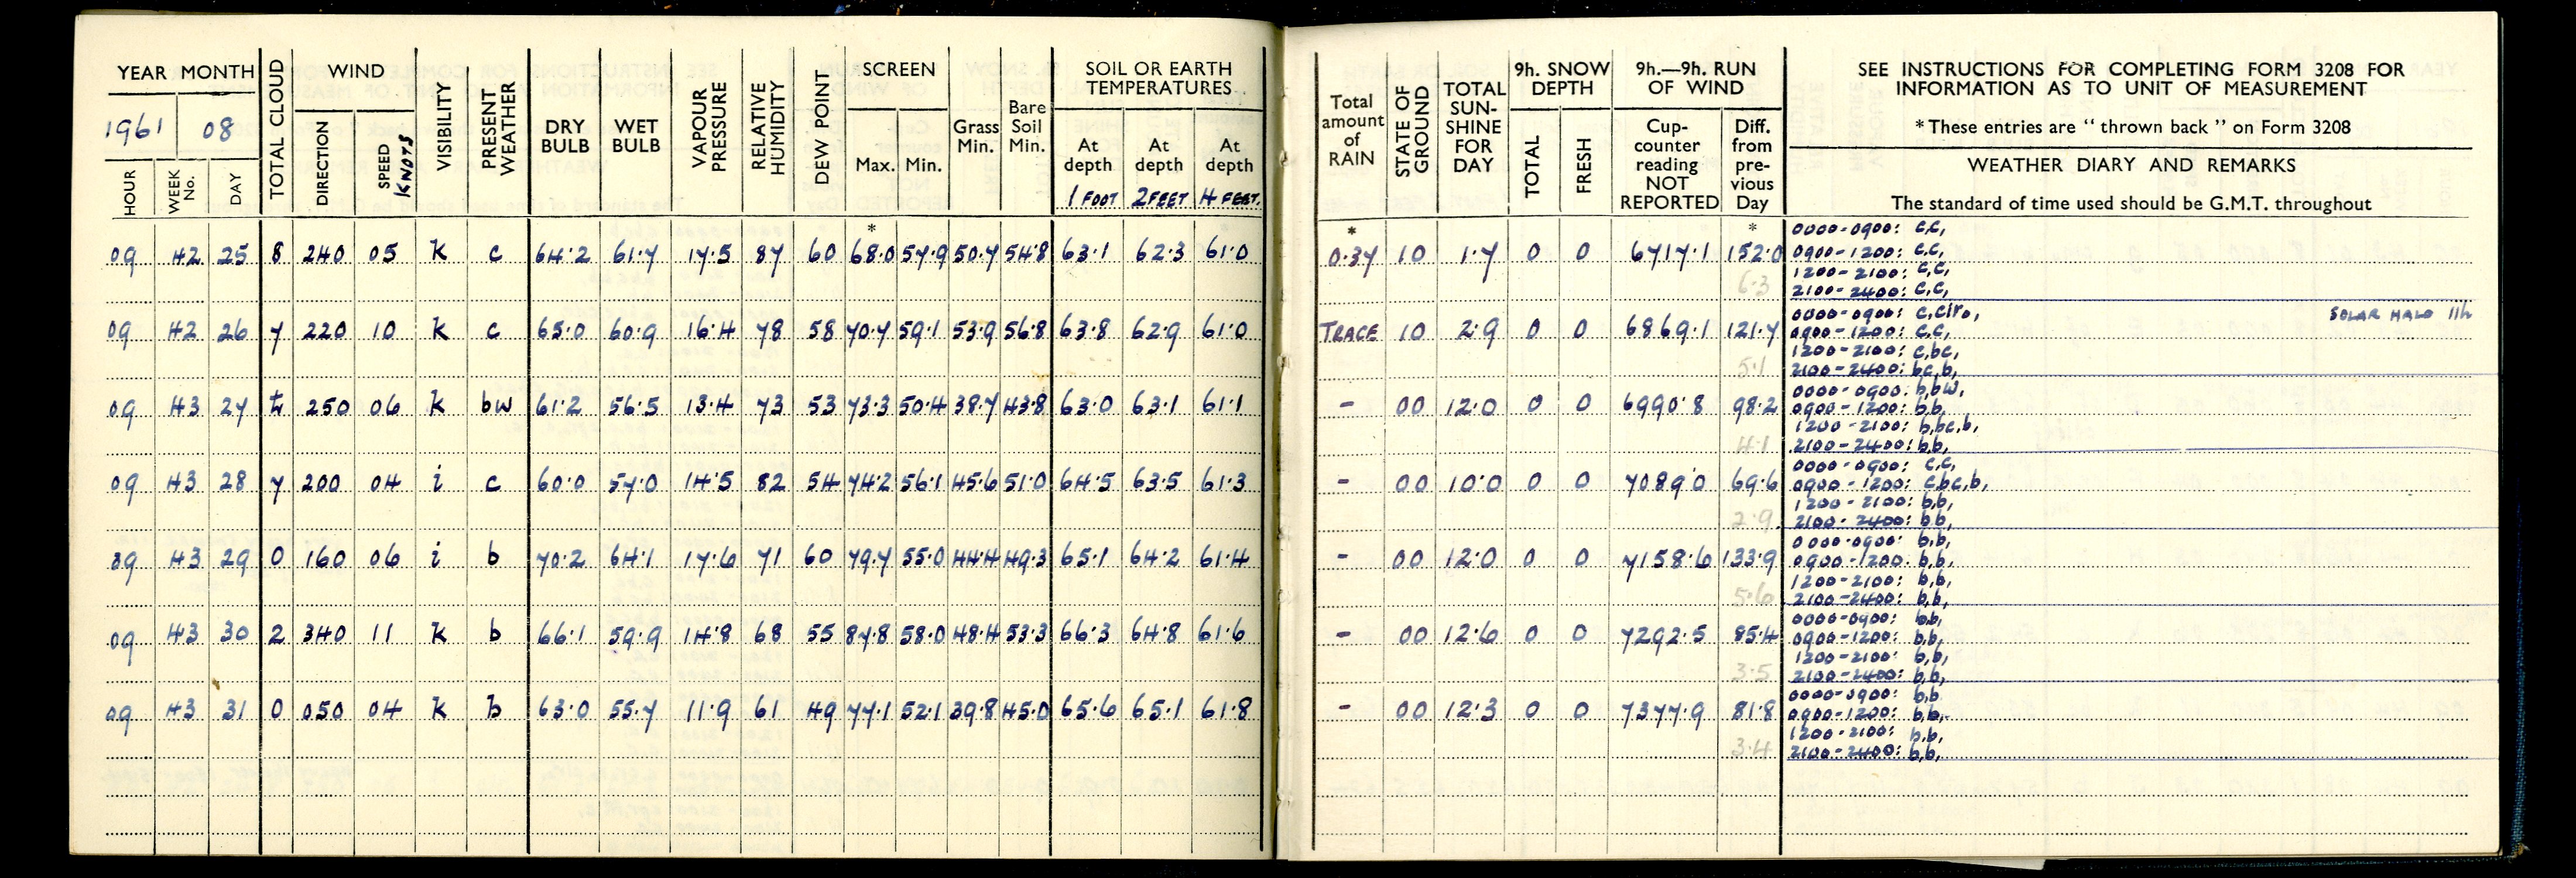 YEAR MONTH TOTAL CLOUD WIND VISIBILITY PRESENT WEATHER DRY BULB WET BULB VAPOUR PRESSURE RELATIVE HUMIDITY DEW POINT SCREEN Grass Min. Bare Soil Min. SOIL OR EARTH TEMPERATURES
1961 08 DIRECTION SPEED KNOTS Max. Min. At depth At depth At depth
HOUR WEEK No. DAY 1 FOOT 2 FEET 4 FEET.
*
09 42 25 8 240 05 k c 64.2 61.7 17.5 87 60 68.0 57.9 50.7 54.8 63.1 62.3 61.0
09 42 26 7 220 10 k c 65.0 60.9 16.4 78 58 70.7 59.1 53.9 56.8 63.8 62.9 61.0
09 43 27 250 06 k bw 61.2 56.5 13.4 73 53 73.3 50.4 38.7 43.8 63.0 63.1 61.1
09 43 28 7 200 04 i c 60.0 57.0 14.5 82 54 74.2 56.1 45.6 51.0 64.5 63.5 61.3
09 43 29 0 160 06 i b 70.2 64.1 17.6 71 60 79.7 55.0 44.4 49.3 65.1 64.2 61.4
09 43 30 2 340 11 k b 66.1 59.9 14.8 68 55 87.8 58.0 48.4 53.3 66.3 64.8 61.6
09 43 31 0 050 04 k b 63.0 55.7 11.9 61 49 77.1 52.1 39.8 45.0 65.6 65.1 61.8
Total amount of RAIN STATE OF GROUND TOTAL SUN-SHINE FOR DAY 9h. SNOW DEPTH 9h.—9h. RUN OF WIND SEE INSTRUCTIONS FOR COMPLETING FORM 3208 FOR
INFORMATION AS TO UNIT OF MEASUREMENT
TOTAL FRESH Cup-counter reading NOT REPORTED Diff. from pre-vious Day * These entries are “ thrown back ” on Form 3208
WEATHER DIARY AND REMARKS
The standard of time used should be G.M.T. throughout
* * 0000-0900: c,c,
0.37 10 1.7 0 0 6717.1 152.0 0900-1200: c,c,
1200-2100: c,c,
6.3 2100-2400: c,c,
0000-0900: c,cIr0, SOLAR HALO 11h
TRACE 10 2.9 0 0 6869.1 121.7 0900-1200: c,c,
1200-2100: c,bc,
5.1 2100-2400: bc,b,
0000-0900: b,bw,
- 00 12.0 0 0 6990.8 98.2 0900-1200: b,b,
1200-2100: b,bc,b,
4.1 2100-2400: b,b,
0000-0900: c,c,
- 00 10.0 0 0 7089.0 69.6 0900-1200: c,bc,b,
1200-2100: b,b,
2.9 2100-2400: b,b,
0000-0900: b,b,
- 00 12.0 0 0 7158.6 133.9 0900-1200: b,b,
1200-2100: b,b,
5.6 2100-2400: b,b,
0000-0900: b,b,
- 00 12.6 0 0 7292.5 85.4 0900-1200: b,b,
1200-2100: b,b,
3.5 2100-2400: b,b,
0000-0900: b,b
- 00 12.3 0 0 7377.9 81.8 0900-1200: b,b,
1200-2100: b,b,
3.4 2100-2400: b,b,